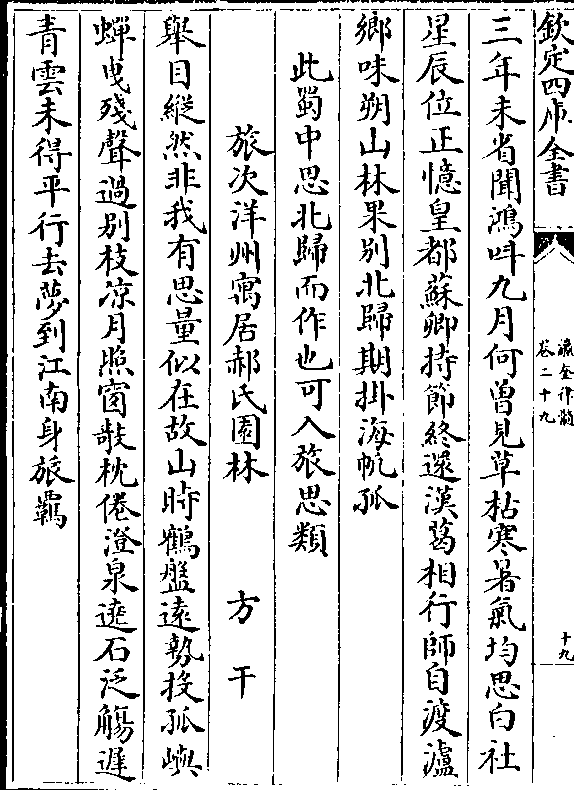 欽定四庫全書
瀛奎律髓
卷二十九
十九
三年未省聞鴻呌九月何曾見草枯寒暑氣均思白社
星辰位正憶皇都蘇卿持節終還漢葛相行師自渡瀘
鄉味朔山林果别北歸期掛海帆孤
此蜀中思北歸而作也可入旅思類
旅次洋州寓居郝氏園林
方干
舉目縱然非我有思量似在故山時鶴盤遠勢投孤嶼
蟬曳殘聲過别枝凉月照窗攲枕倦澄泉遶石泛觴遲
青雲未得平行去夢到江南身旅羈